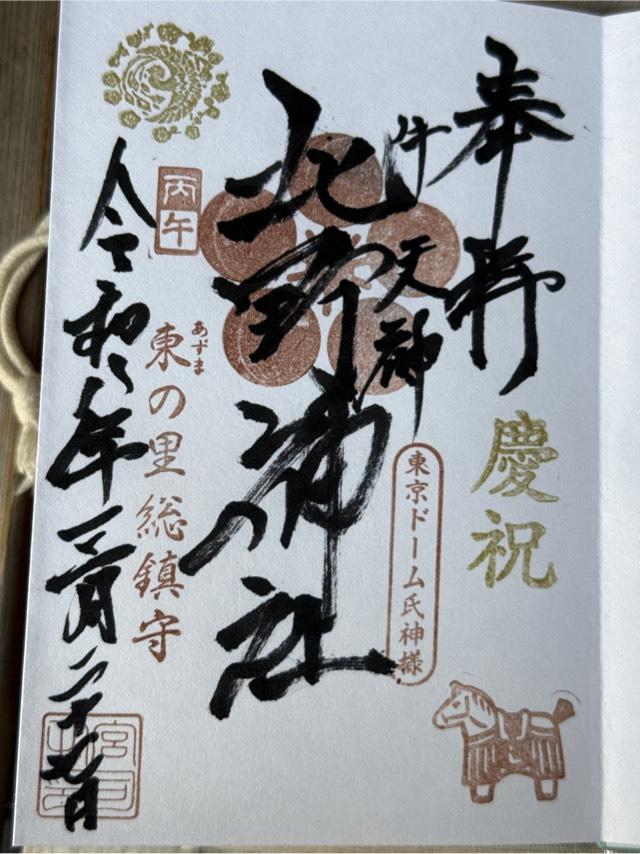 奉拝
慶祝
牛天神
東京ドーム氏神様
北野神社
あずま
東の里総鎮守
丙午
令和八年三月二十七日
宮司